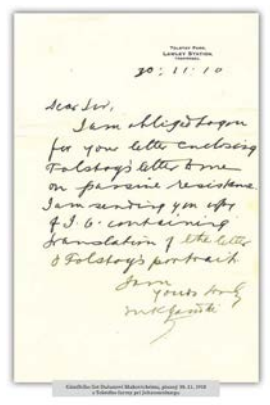 TOLSTOY FARM,
LAWLEY STATION,
TRANSVAAL
30 : 11 : 10
Dear Sir,
I am obliged to you
for your letter enclosing
Tolstoy's letter to me
on passive resistance.
I am sending you copy
of I. O. containing
translation of the letter
& Tolstoy's portrait.
I am
Yours truly
MKGandhi
Gándhího list Dušanovi Makovickému, psaný 30. 11. 1910
z Tolstého farmy pri Johannesburgu